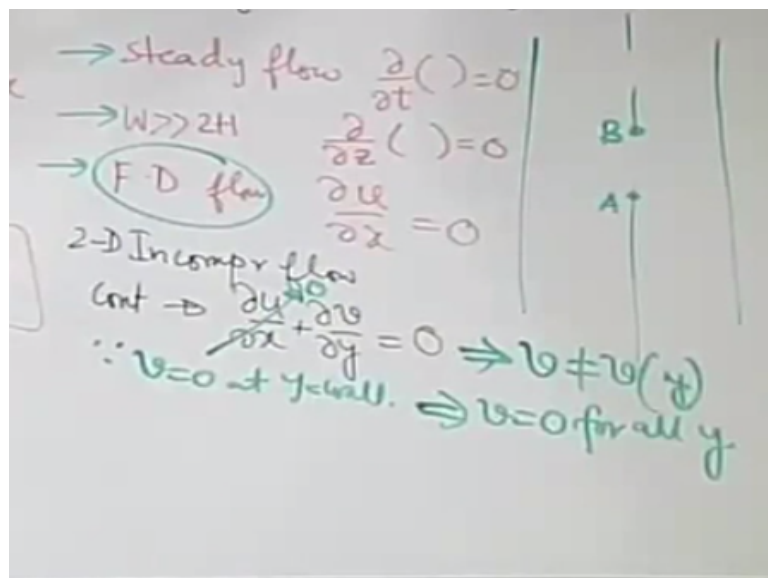 → Steady flow ∂/∂t ( ) = 0
→ W>>2H ∂/∂z ( ) = 0
→ F.D flow ∂u/∂x = 0
B
A
2-D Incompr flow
Cont → ∂u/∂x → 0 + ∂v/∂y = 0 ⇒ v ≠ v(y)
∵ v=0 at y=wall. ⇒ v=0 for all y